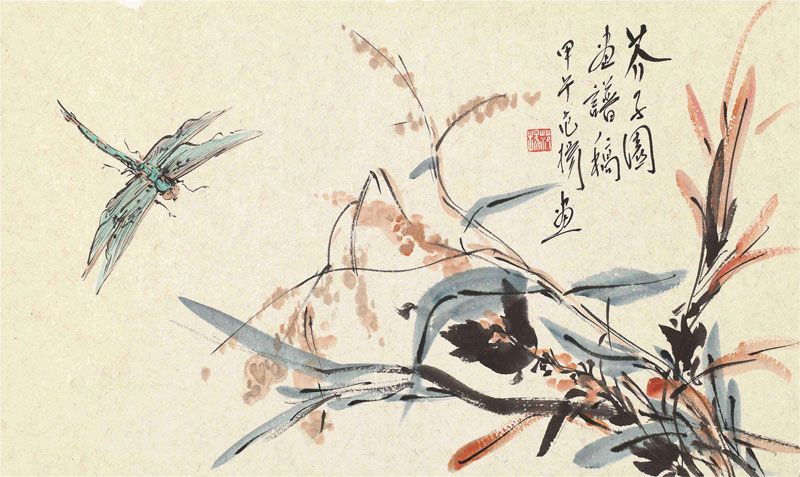 芥子園
畫譜稿
甲午范揚畫